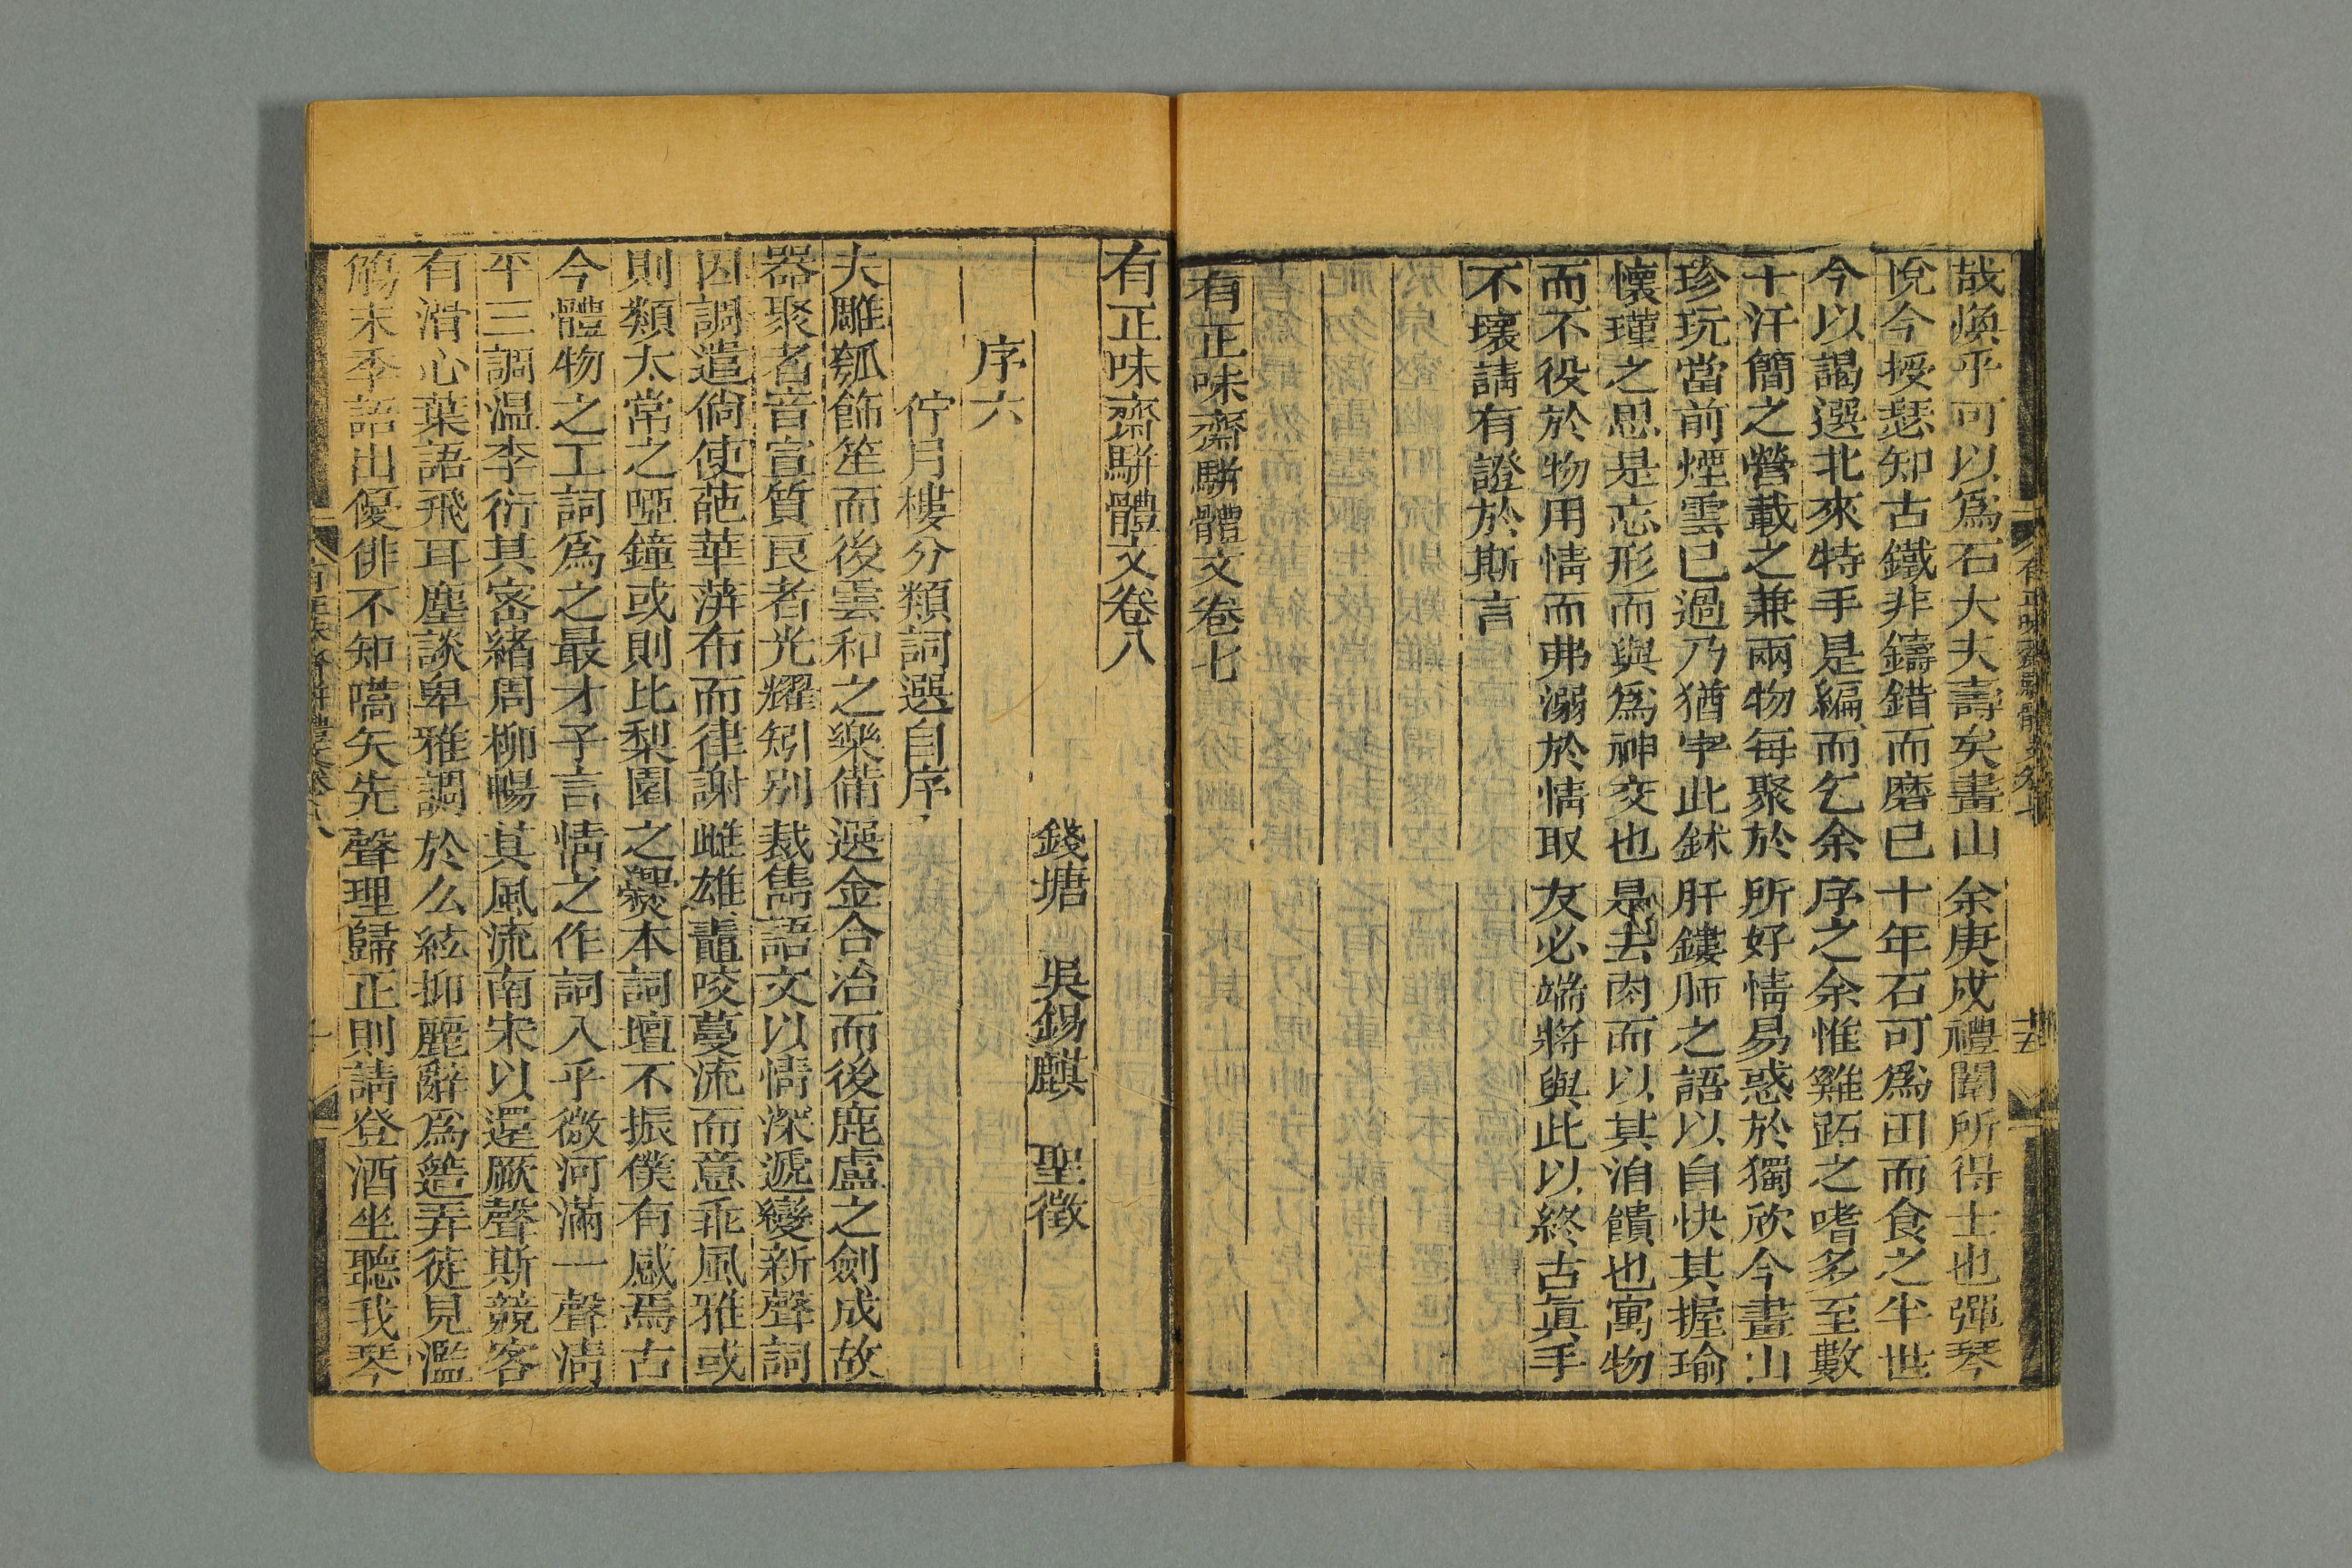 哉煥乎可以爲石大夫壽矣畫山余庚戌禮闈所得士也彈琴
悅今授瑟知古鐵非鑄錯而磨已十年石可爲田而食之半世
今以謁選北來特手是編而乞余序之余惟雞跖之嗜多至數
十汗簡之營載之兼兩物每聚於所好情易惑於獨欣今畫山
珍玩當前煙雲已過乃猶字此鉥肝鏤肺之語以自快其握瑜
懷瑾之思是忘形而與爲神交也是去肉而以其洎饋也寓物
而不役於物用情而弗溺於情取友必端將與此以終古眞手
不壞請有證於斯言
有正味齋駢體文卷七
有正味齋駢體文卷七
廿五
有正味齋駢體文卷八
錢塘 吳錫麒 聖徵
序六
佇月樓分類詞選自序
夫雕瓠飾笙而後雲和之樂備選金合冶而後鹿盧之劍成故
器聚者音宣質良者光耀矧別裁雋語文以情深遞變新聲詞
因調遣倘使葩華蓱布而律謝雌雄鼃咬蔓流而意乖風雅或
則類太常之啞鐘或則比梨園之爨本詞壇不振僕有感焉古
今體物之工詞爲之最才子言情之作詞入乎微河滿一聲淸
平三調溫李衍其密緒周柳暢其風流南宋以還厥聲斯競客
有滑心葉語飛耳塵談卑雅調於么絃抑麗辭爲簉弄徒見濫
觴末季語出優俳不知嚆矢先聲理歸正則請登酒坐聽我琴
有正味齋駢體文卷八
一